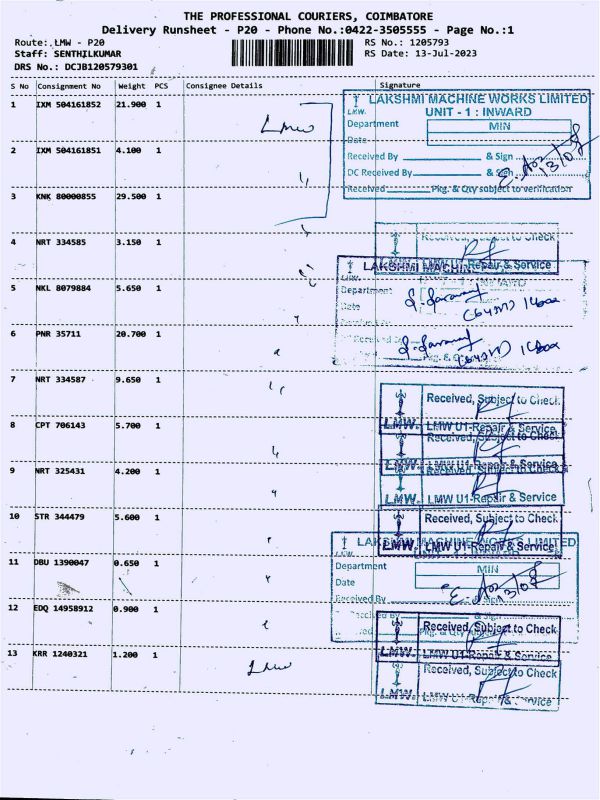 THE PROFESSIONAL COURIERS, COIMBATORE
Delivery Runsheet - P20 - Phone No.:0422-3505555 - Page No.:1
Route: LMW - P20
RS No.: 1205793
Staff: SENTHILKUMAR
RS Date: 13-Jul-2023
DRS No.: DCJB120579301
S No Consignment No Weight PCS Consignee Details Signature
1 IXM 504161852 21.900 1 LMW
LAKSHMI MACHINE WORKS LIMITED
UNIT - 1 : INWARD
LMW.
Department MIN
Date
2 IXM 504161851 4.100 1
Received By & Sign
DC Received By & Sign
Received Pkg. & Qty subject to verification
3 KNK 80000855 29.500 1
4 NRT 334585 3.150 1
Received, Subject to Check
LMW U1-Repair & Service
LAKSHMI MACHIN
5 NKL 8079884 5.650 1
Department
Date
6 PNR 35711 20.700 1
7 NRT 334587 9.650 1
Received, Subject to Check
8 CPT 706143 5.700 1
LMW. LMW U1-Repair & Service
Received, Subject to Check
9 NRT 325431 4.200 1
LMW. LMW U1-Repair & Service
Received, Subject to Check
LMW. LMW U1-Repair & Service
10 STR 344479 5.600 1
Received, Subject to Check
LMW. LMW U1-Repair & Service
11 DBU 1390047 0.650 1
Department MIN
Date
Received By & Sign
12 EDQ 14958912 0.900 1
Received, Subject to Check
13 KRR 1240321 1.200 1 LMW
LMW. LMW U1-Repair & Service
Received, Subject to Check
LMW. LMW U1-Repair & Service